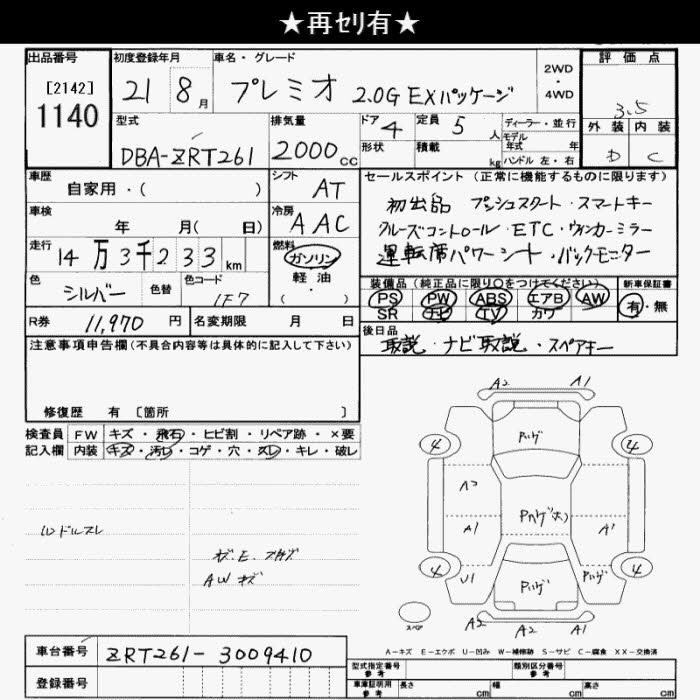 ★再セリ有★
出品番号 初度登録年月 車名・グレード 2WD・4WD 評価点
[2142]
1140
21 8月 プレミオ 2.0G EXパッケージ 3.5
型式 排気量 ドア 4 定員 5人 ディーラー・並行 外装 内装
DBA-ZRT261 2000cc 形状 積載 kg モデル年式 年 ハンドル 左・右 D C
車歴 自家用・( ) シフト AT セールスポイント (正常に機能するものに限ります)
車検 年 月( 日) 冷房 AAC 初出品 プッシュスタート・スマートキー
クルーズコントロール・ETC・ウィンカーミラー
走行 14万3千233km 燃料 ガソリン 軽油・( ・ ) 運転席パワーシート・バックモニター
色 シルバー 色替 色コード 1F7 装備品 (純正品に限り○をつけてください) 新車保証書
PS PW ABS エアB AW 有・無
SR ナビ TV カワ
R券 11,970円 名変期限 月 日 後日品
取説・ナビ取説・スペアキー
注意事項申告欄(不具合内容等は具体的に記入して下さい)
修復歴 有 [箇所 ]
検査員 FW キズ・飛石・ヒビ割・リペア跡・×要
記入欄 内装 キズ・汚レ・コゲ・穴・スレ・キレ・破レ
A2 A1
4 4
A1 A1
4 U1 4
A2 A2 A1
ハンドルスレ
AWキズ
スペア
A-キズ E-エクボ U-凹み W-補修跡 S-サビ C-腐食 XX-交換済
車台番号 ZRT261-3009410
型式指定番号 参考 類別区分番号 参考
登録番号 車庫証明用 参考 長さ cm 幅 cm 高さ cm